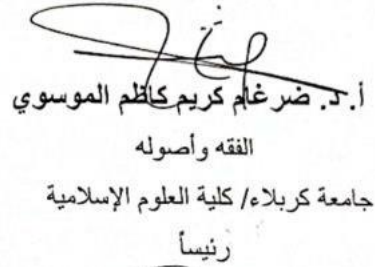 أ.د. ضرغام كريم كاظم الموسوي
الفقه وأصوله
جامعة كربلاء/ كلية العلوم الإسلامية
رئيساً